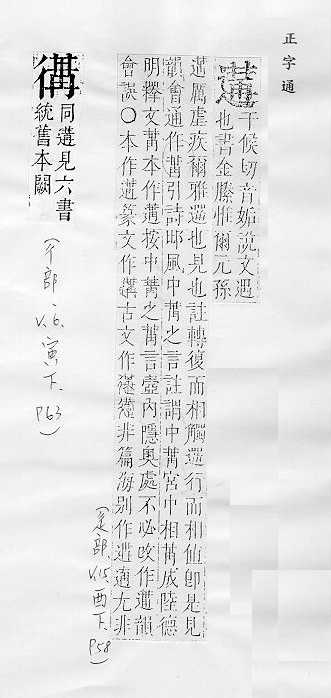 正字通
遘 干候切音姤說文遇
也書金縢惟爾元孫
遘厲虐疾爾雅遘也見也註轉復而相觸遘行而相値卽是見
韻會通作冓引詩鄘風中冓之言註謂中冓宮中相冓成陸德
明釋文冓本作遘按中冓之冓言壼內隱奧處不必改作遘韻
會誤○本作遘篆文作古文作非篇海别作尤非
(辵部、V.15,酉下、P58)
同遘見六書
統舊本闕
(彳部、V.6,寅下、P63)